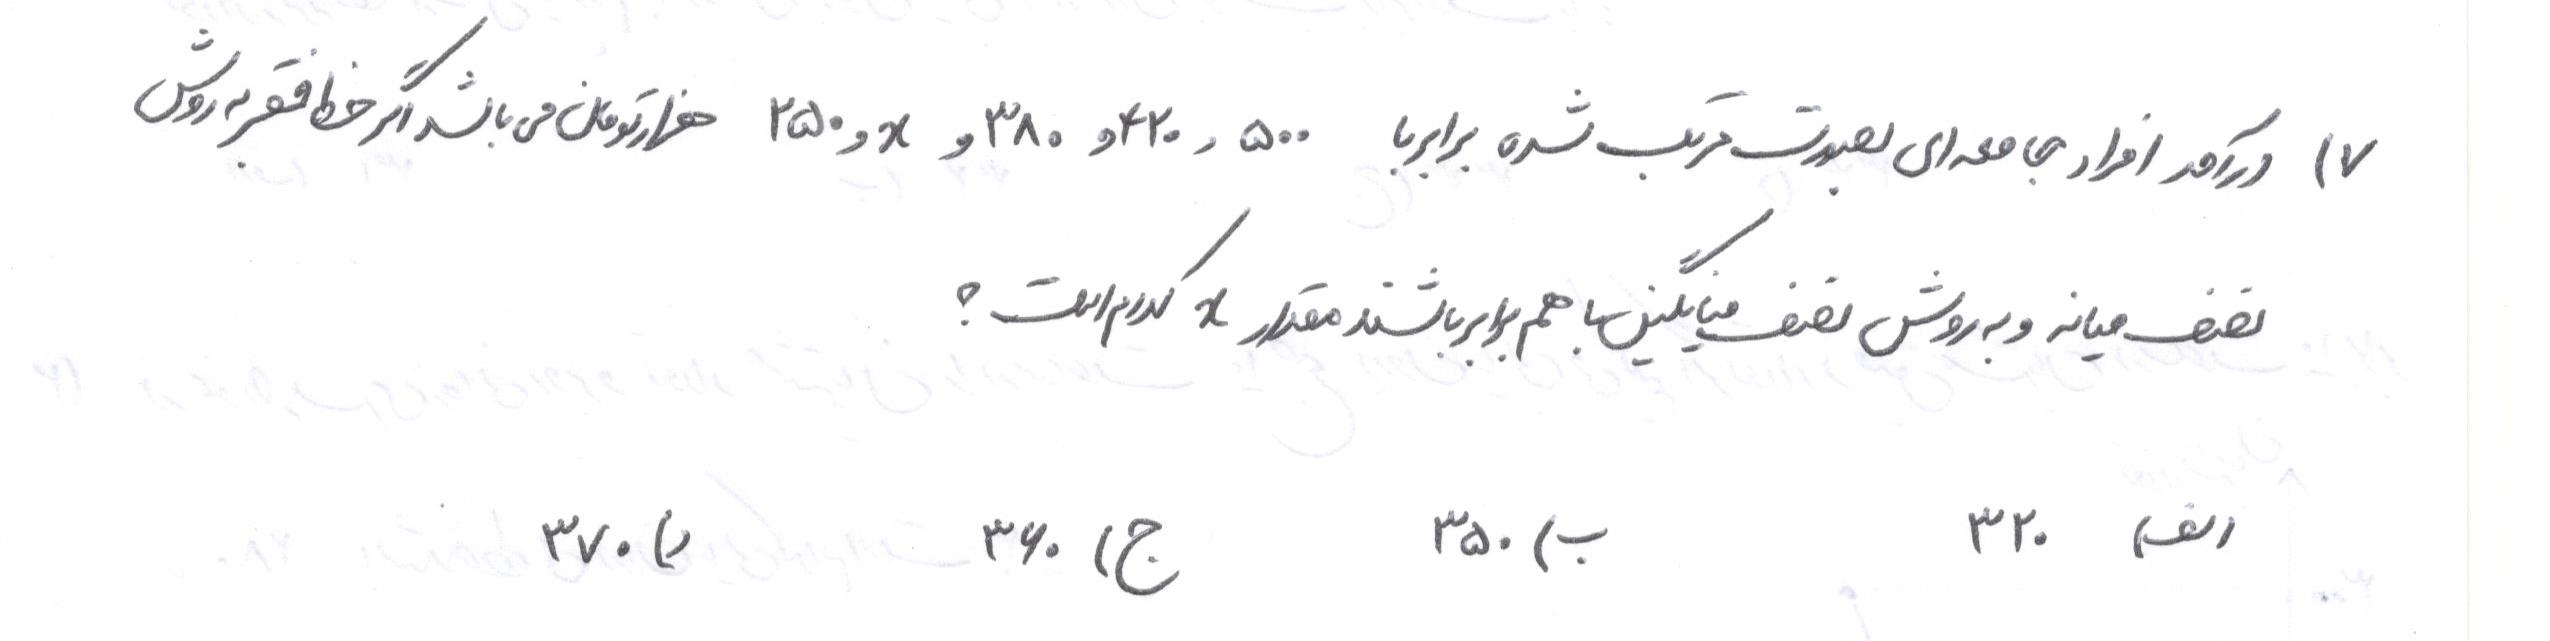 ۷) درآمد افراد جامعه ای بصورت مرتب شده برابر با ۵۰۰ و ۴۲۰ و ۳۸۰ و x و ۲۵۰ هزار تومان می باشد اگر خط فقر به روش
نصف میانه و به روش نصف میانگین با هم برابر باشند مقدار x کدام است ؟
الف) ۳۲۰ ب) ۳۵۰ ج) ۳۶۰ د) ۳۷۰